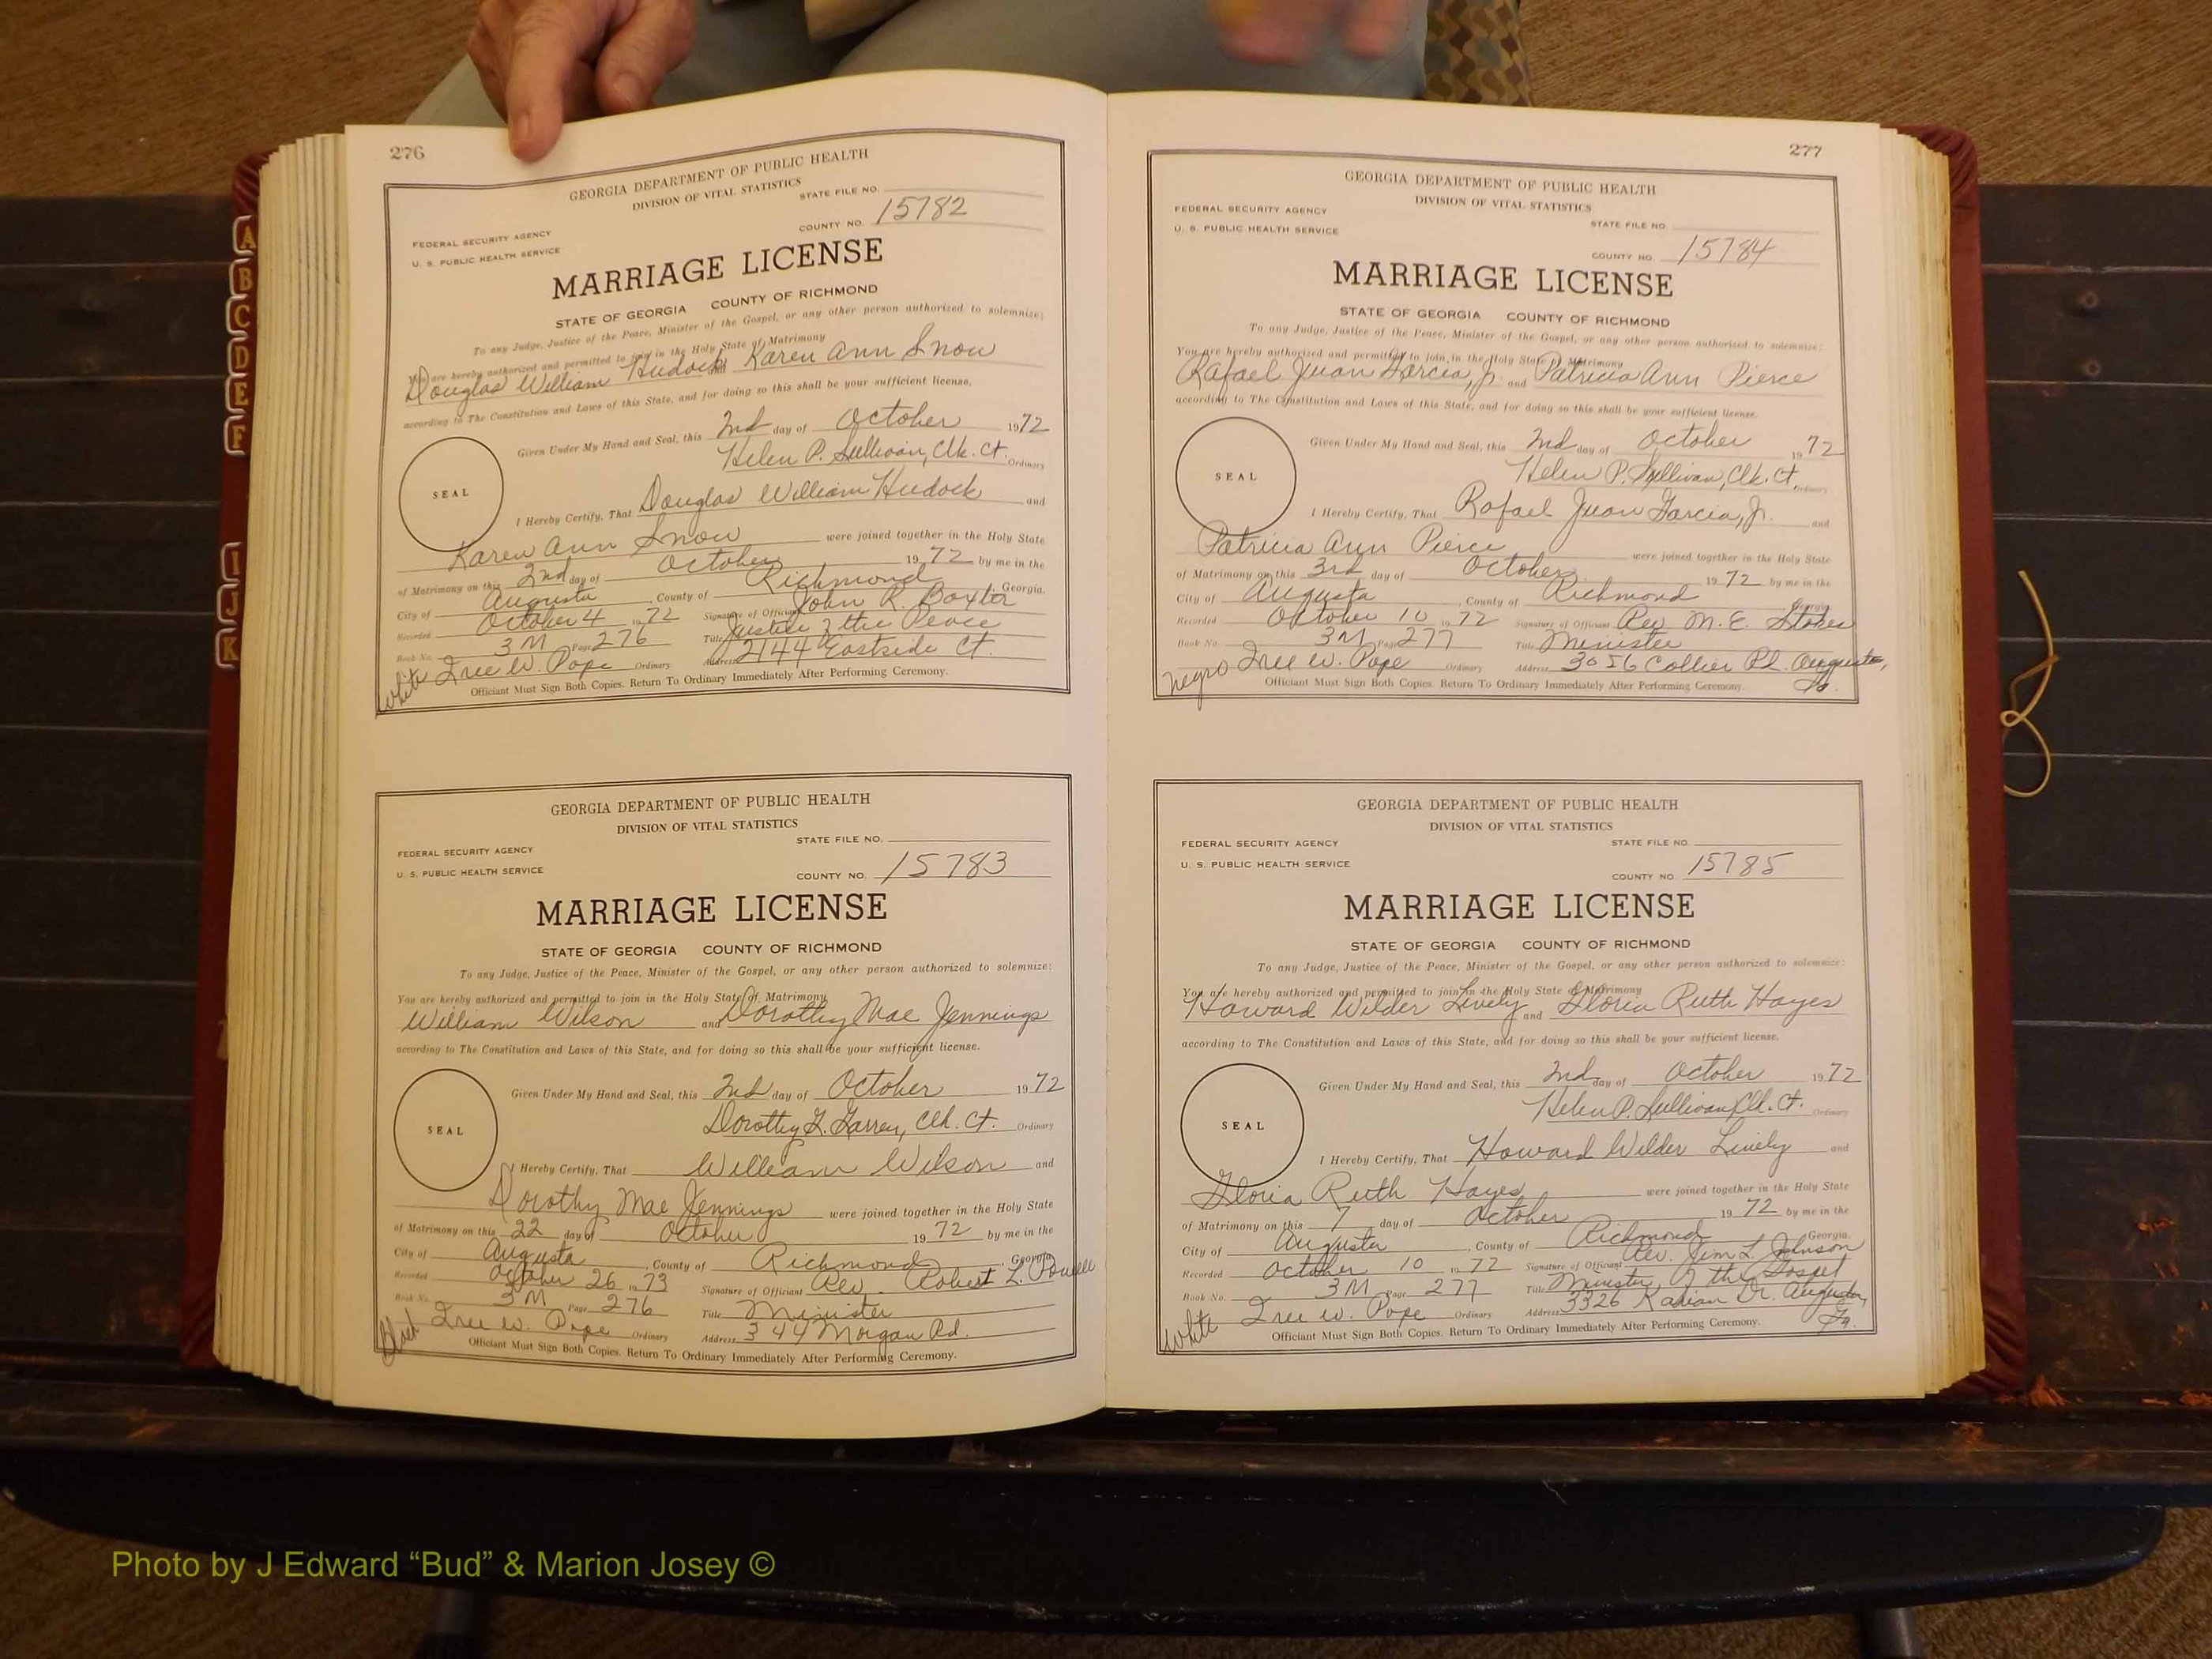 A
B
C
D
E
F
I
J
K
276
GEORGIA DEPARTMENT OF PUBLIC HEALTH
DIVISION OF VITAL STATISTICS
STATE FILE NO.
FEDERAL SECURITY AGENCY
U. S. PUBLIC HEALTH SERVICE
COUNTY NO. 15782
MARRIAGE LICENSE
STATE OF GEORGIA COUNTY OF RICHMOND
To any Judge, Justice of the Peace, Minister of the Gospel, or any other person authorized to solemnize:
You are hereby authorized and permitted to join in the Holy State of Matrimony
Douglas William Hudock and Karen Ann Snow
according to The Constitution and Laws of this State, and for doing so this shall be your sufficient license.
Given Under My Hand and Seal, this 2nd day of October 1972
Helen P. Sullivan, Clk. Ct. Ordinary
SEAL
I Hereby Certify, That Douglas William Hudock and
Karen Ann Snow were joined together in the Holy State
of Matrimony on this 2nd day of October 1972 by me in the
City of Augusta, County of Richmond, Georgia.
Recorded October 4 1972 Signature of Officiant John R. Baxter
Book No. 3M Page 276 Title Justice of the Peace
Tree W. Pope Ordinary Address 2144 Eastside Ct.
White
Officiant Must Sign Both Copies. Return To Ordinary Immediately After Performing Ceremony.
GEORGIA DEPARTMENT OF PUBLIC HEALTH
DIVISION OF VITAL STATISTICS
STATE FILE NO.
FEDERAL SECURITY AGENCY
U. S. PUBLIC HEALTH SERVICE
COUNTY NO. 15783
MARRIAGE LICENSE
STATE OF GEORGIA COUNTY OF RICHMOND
To any Judge, Justice of the Peace, Minister of the Gospel, or any other person authorized to solemnize:
You are hereby authorized and permitted to join in the Holy State of Matrimony
William Wilson and Dorothy Mae Jennings
according to The Constitution and Laws of this State, and for doing so this shall be your sufficient license.
Given Under My Hand and Seal, this 2nd day of October 1972
Dorothy Clk. Ct. Ordinary
SEAL
I Hereby Certify, That William Wilson and
Dorothy Mae Jennings were joined together in the Holy State
of Matrimony on this 22 day of October 1972 by me in the
City of Augusta, County of Richmond, Georgia
Recorded October 26 1973 Signature of Officiant Rev. Robert L. Powell
Book No. 3M Page 276 Title Minister
Tree W. Pope Ordinary Address 344 Morgan Rd.
Black
Officiant Must Sign Both Copies. Return To Ordinary Immediately After Performing Ceremony.
277
GEORGIA DEPARTMENT OF PUBLIC HEALTH
DIVISION OF VITAL STATISTICS
FEDERAL SECURITY AGENCY
U. S. PUBLIC HEALTH SERVICE
STATE FILE NO.
COUNTY NO. 15784
MARRIAGE LICENSE
STATE OF GEORGIA COUNTY OF RICHMOND
To any Judge, Justice of the Peace, Minister of the Gospel, or any other person authorized to solemnize:
You are hereby authorized and permitted to join in the Holy State of Matrimony
Rafael Juan Garcia, Jr. and Patricia Ann Pierce
according to The Constitution and Laws of this State, and for doing so this shall be your sufficient license.
Given Under My Hand and Seal, this 2nd day of October 1972
Helen P. Sullivan, Clk. Ct. Ordinary
SEAL
I Hereby Certify, That Rafael Juan Garcia, Jr. and
Patricia Ann Pierce were joined together in the Holy State
of Matrimony on this 3rd day of October 1972 by me in the
City of Augusta, County of Richmond Georgia
Recorded October 10 1972 Signature of Officiant Rev. M. E. Stokes
Book No. 3M Page 277 Title Minister
Tree W. Pope Ordinary Address 3056 Collier Pl. Augusta, Ga.
Negro
Officiant Must Sign Both Copies. Return To Ordinary Immediately After Performing Ceremony.
GEORGIA DEPARTMENT OF PUBLIC HEALTH
DIVISION OF VITAL STATISTICS
FEDERAL SECURITY AGENCY
U. S. PUBLIC HEALTH SERVICE
STATE FILE NO.
COUNTY NO. 15785
MARRIAGE LICENSE
STATE OF GEORGIA COUNTY OF RICHMOND
To any Judge, Justice of the Peace, Minister of the Gospel, or any other person authorized to solemnize:
You are hereby authorized and permitted to join in the Holy State of Matrimony
Howard Wilder Lively and Gloria Ruth Hayes
according to The Constitution and Laws of this State, and for doing so this shall be your sufficient license.
Given Under My Hand and Seal, this 2nd day of October 1972
Helen P. Sullivan, Clk. Ct. Ordinary
SEAL
I Hereby Certify, That Howard Wilder Lively and
Gloria Ruth Hayes were joined together in the Holy State
of Matrimony on this 7 day of October 1972 by me in the
City of Augusta, County of Richmond Georgia.
Recorded October 10 1972 Signature of Officiant Rev. Jim L. Johnson
Book No. 3M Page 277 Title Minister of the Gospel
Tree W. Pope Ordinary Address 3326 Dr. Augusta, Ga.
White
Officiant Must Sign Both Copies. Return To Ordinary Immediately After Performing Ceremony.
Photo by J Edward “Bud” & Marion Josey ©